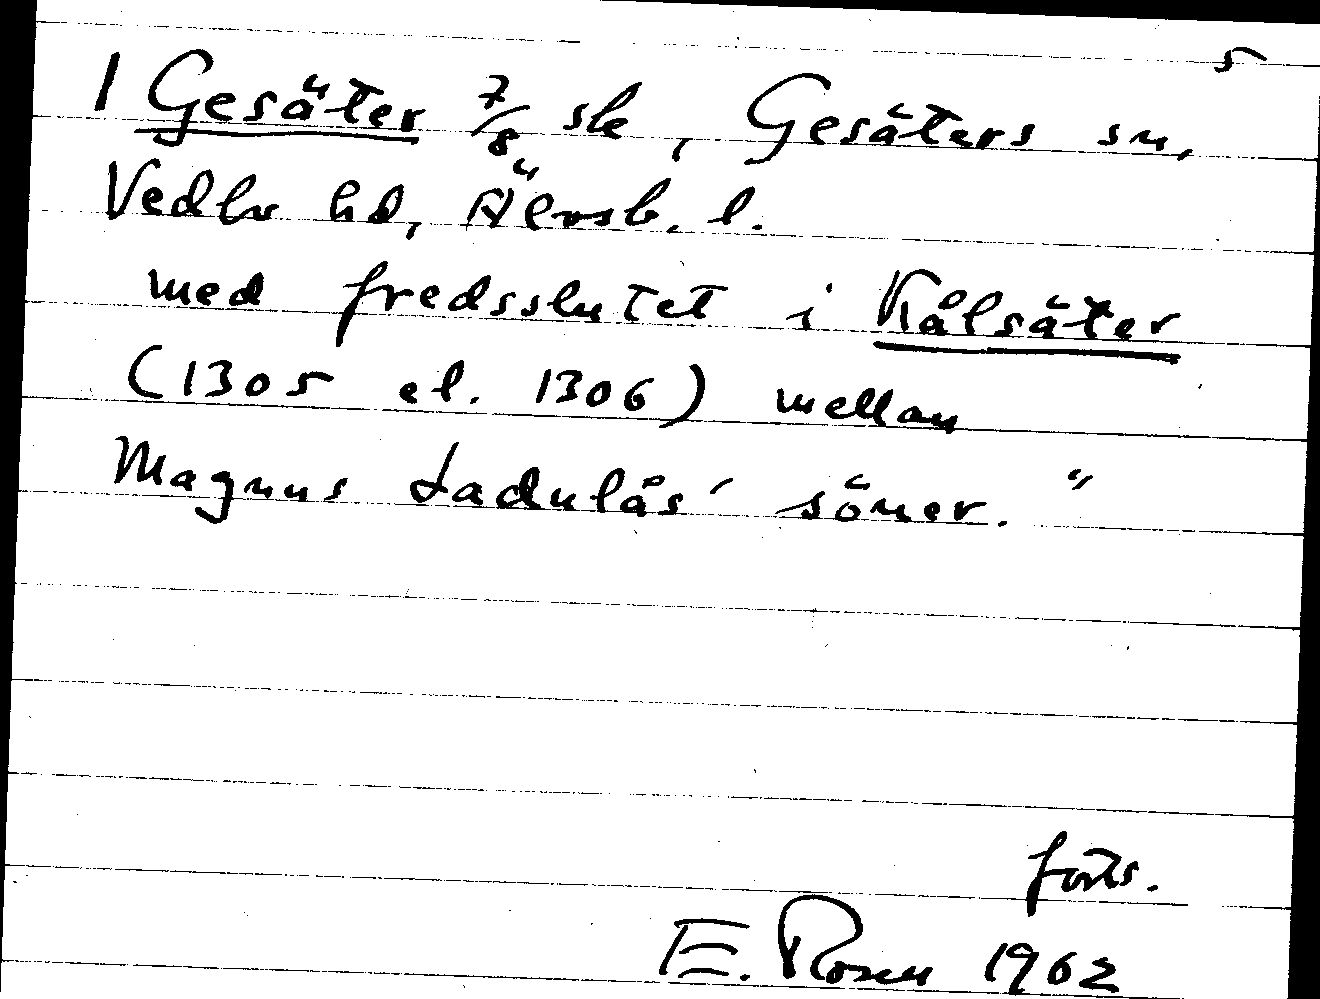 5
1 Gesäter 7/8 sk, Gesäters sn,
Vedbo hd, Älvsb. l.
med fredsslutet i Kålsäter
(1305 el. 1306) mellan
Magnus Ladulås' söner. "
forts.
E. Rosen 1962